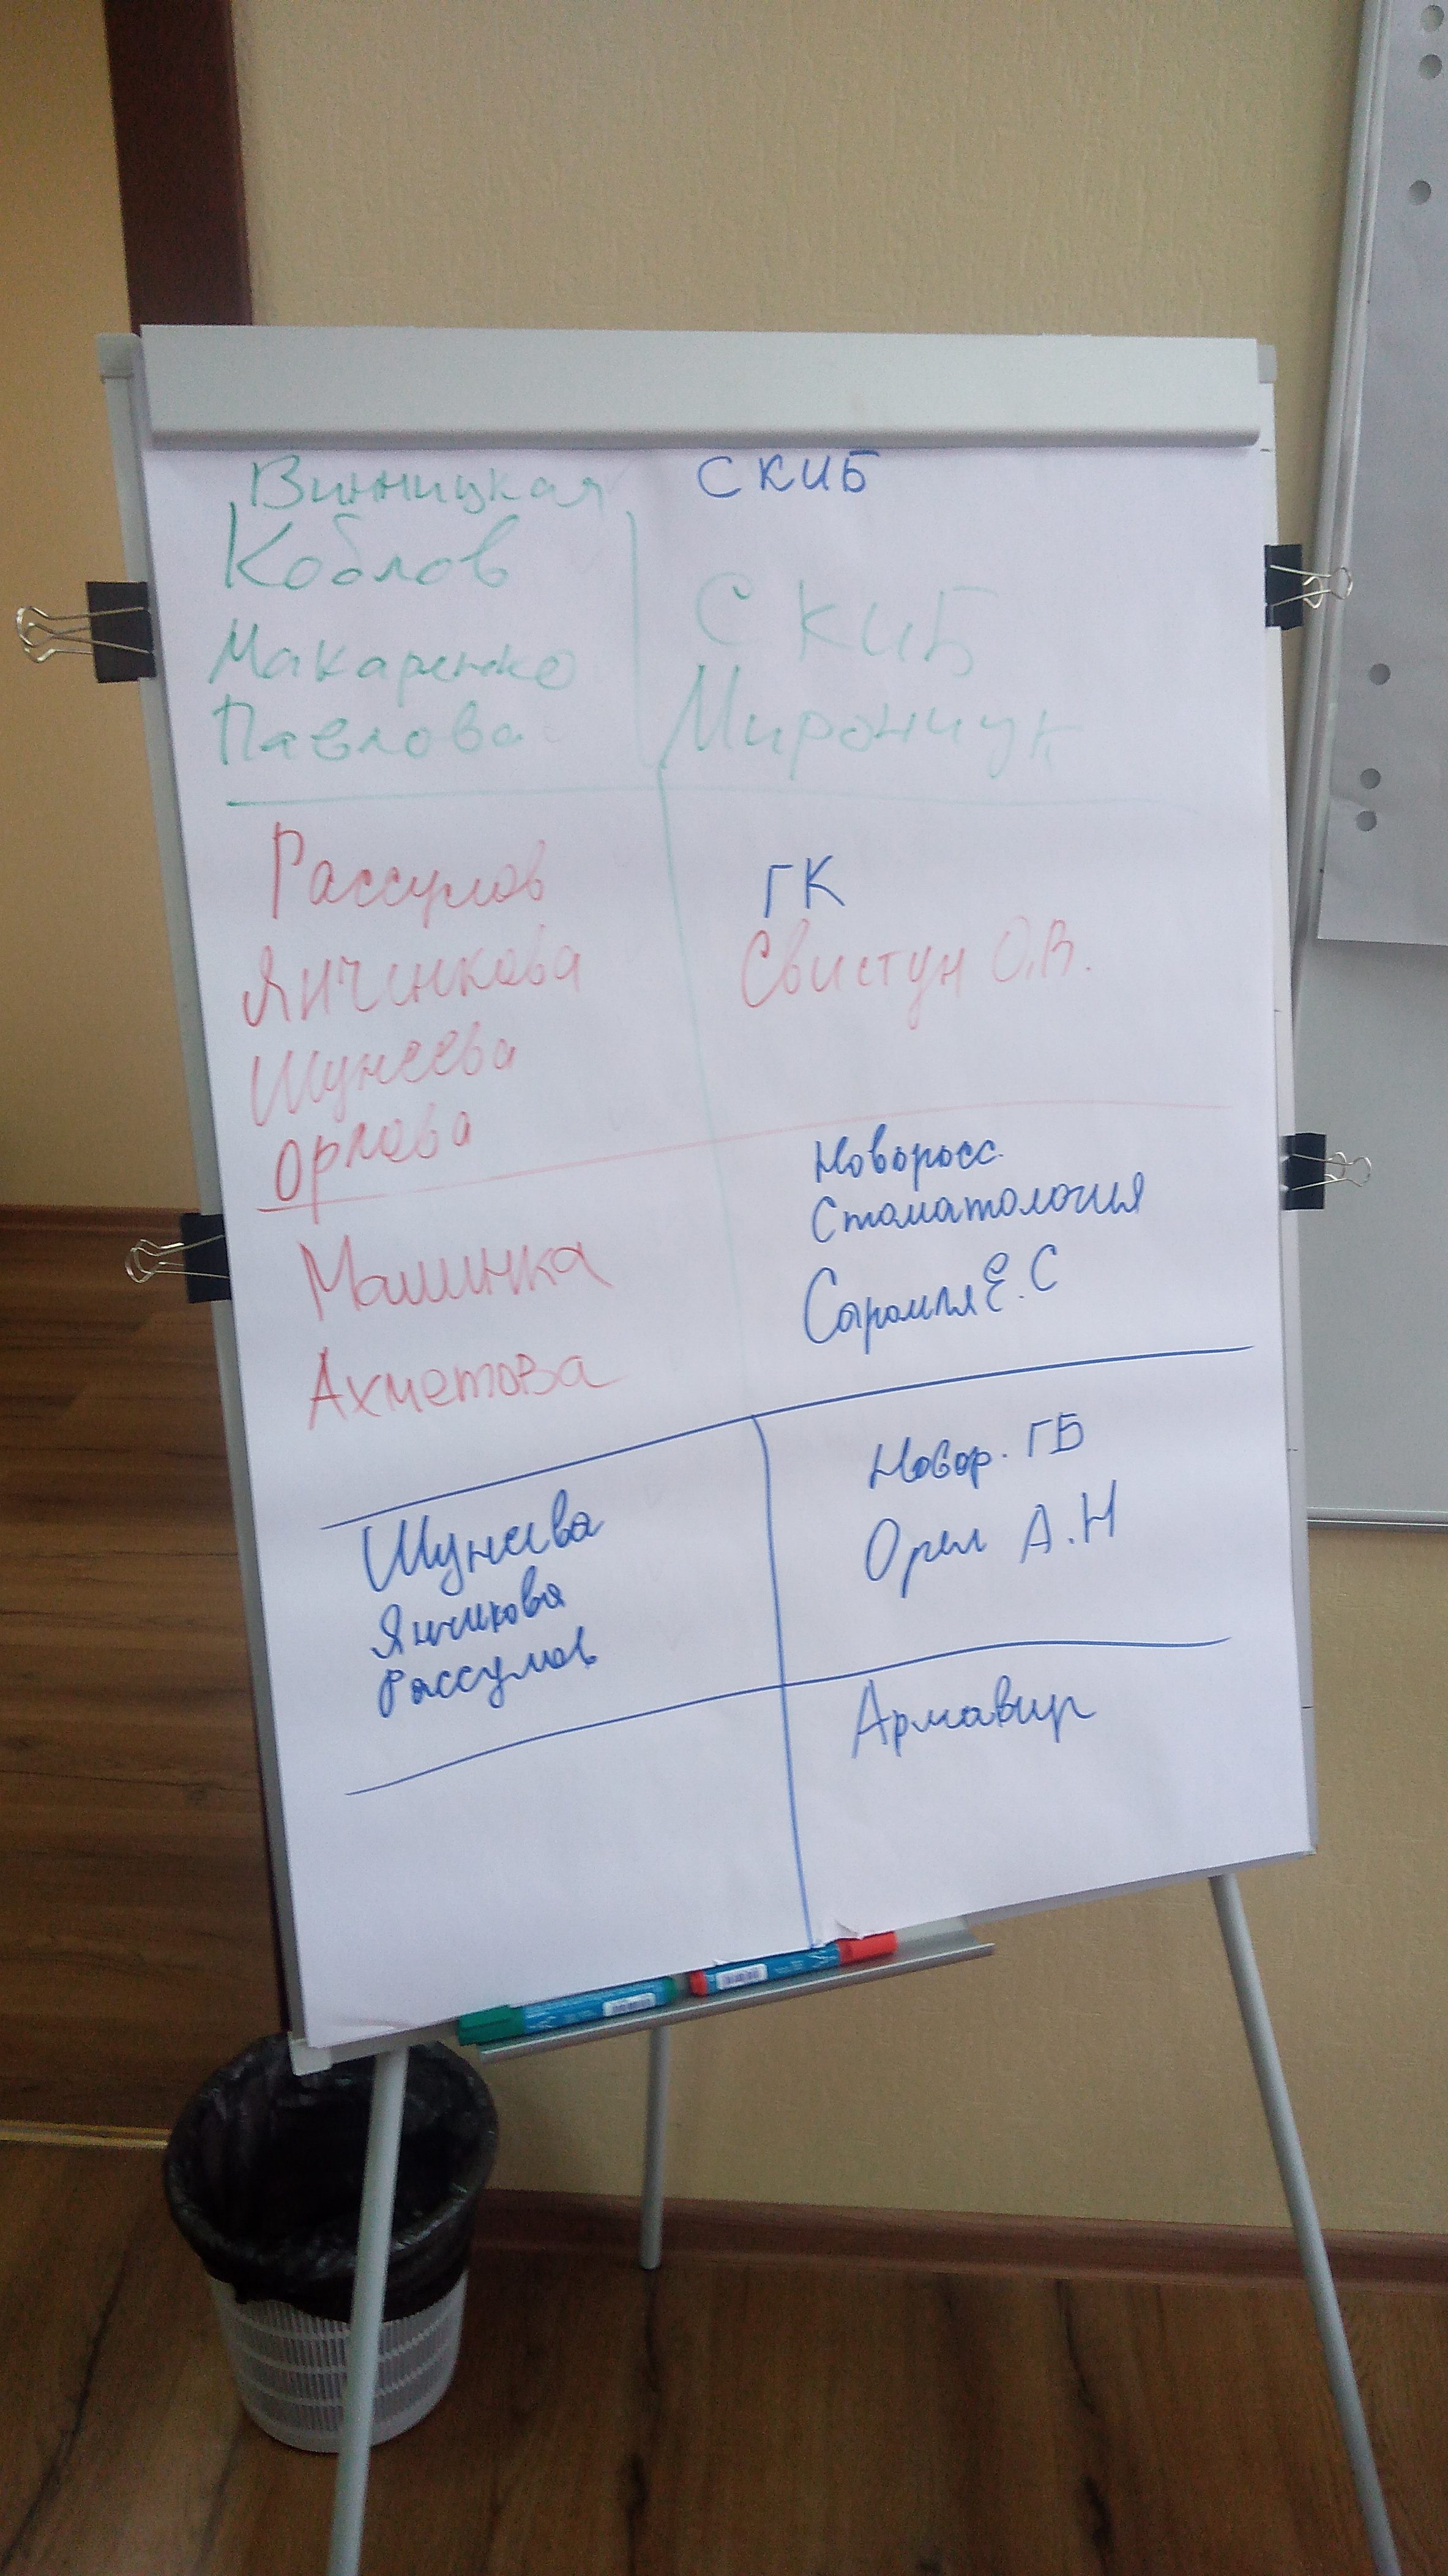 Винницкая
СКИБ
Коблов
Макаренко
Павлова
СКИБ
Мирончук
Рассулов
Янченкова
Шунеева
Орлова
ГК
Свистун О.В.
Машинка
Ахметова
Новоросс.
Стоматология
Е.С
Шунеева
Рассулов
Новор. ГБ
Орел А.Н
Армавир